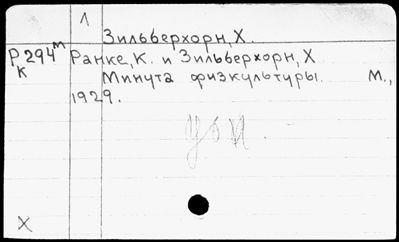 1
Зильверхорн, Х.
Р294м Ранке, К. и Зильверхорн, Х
К Минута физкультуры. М.,
1929.
Х